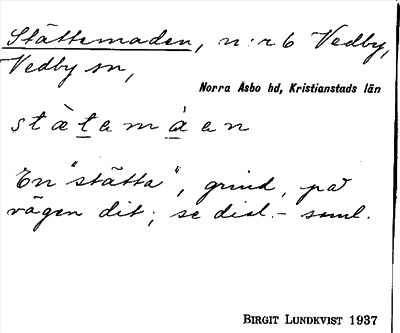 Stättemaden, n:r 6 Vedby,
Vedby sn,
Norra Åsbo hd, Kristianstads län
stàtamáen
En "stätta", grind, på
vägen dit; se dial.- saml.
BIRGIT LUNDKVIST 1937